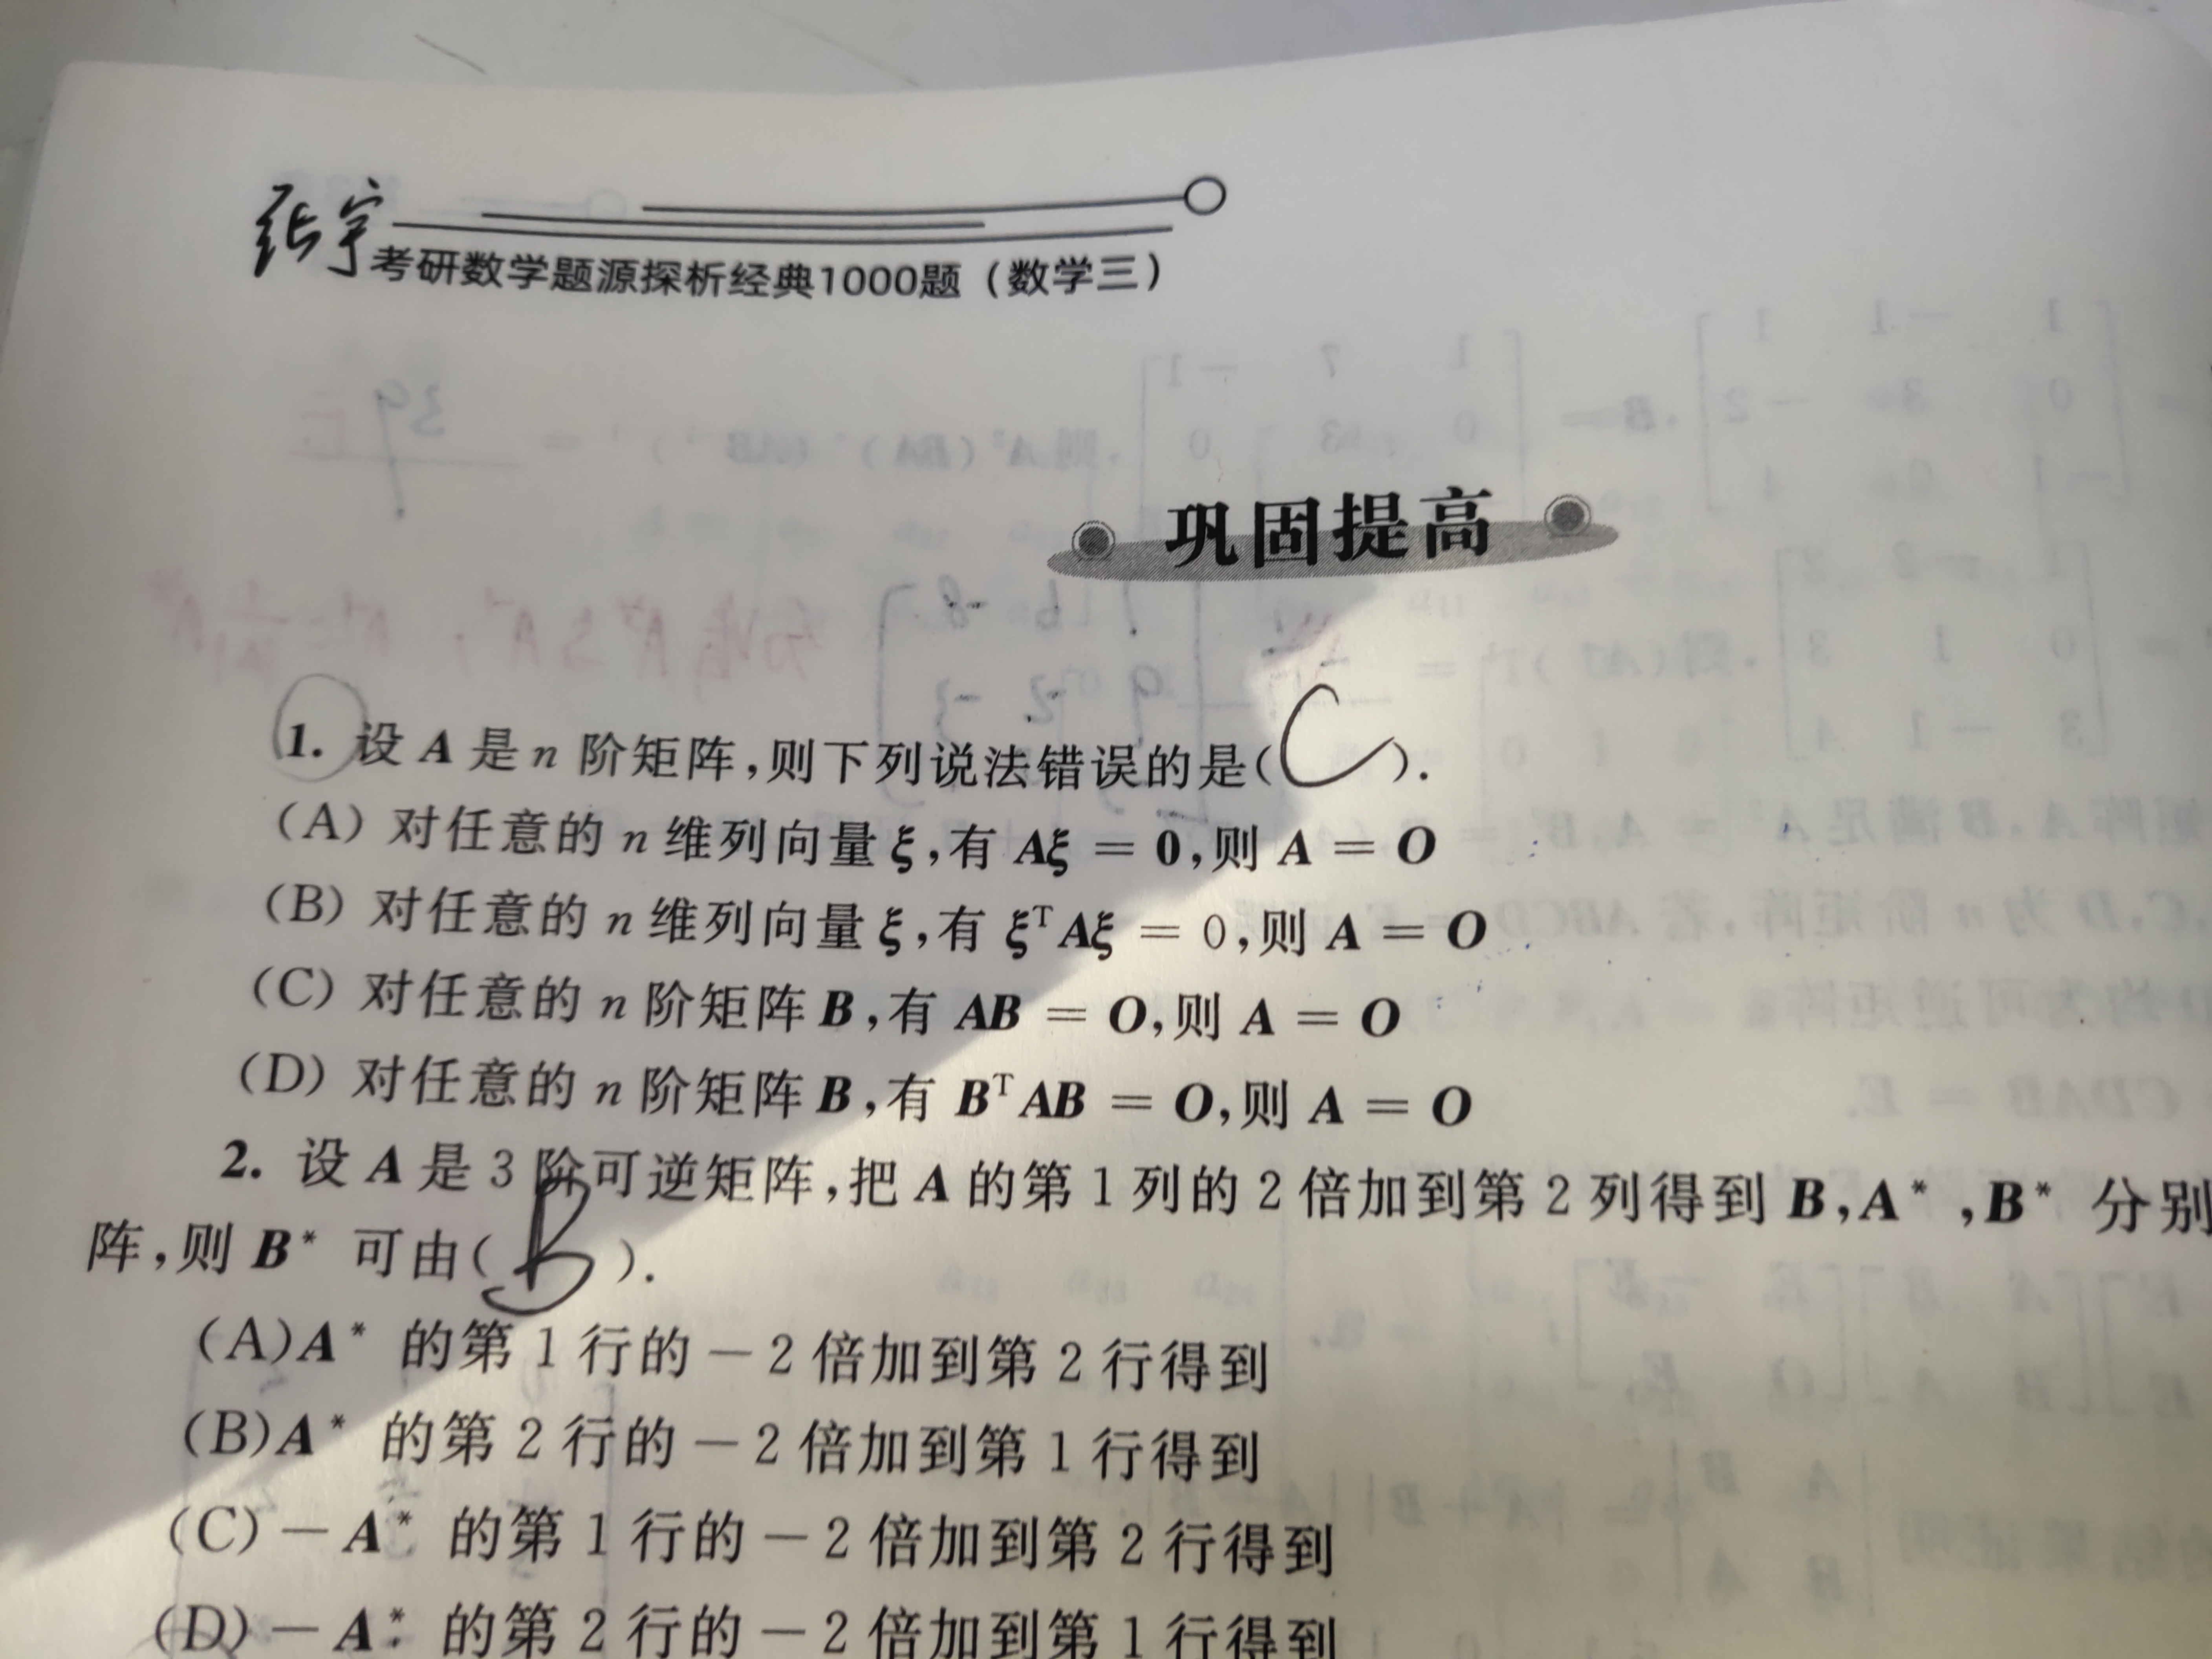 张宇
考研数学题源探析经典1000题（数学三）
巩固提高
1. 设 A 是 n 阶矩阵,则下列说法错误的是( C ).
(A) 对任意的 n 维列向量 ξ,有 Aξ = 0,则 A = O
(B) 对任意的 n 维列向量 ξ,有 ξᵀAξ = 0,则 A = O
(C) 对任意的 n 阶矩阵 B,有 AB = O,则 A = O
(D) 对任意的 n 阶矩阵 B,有 BᵀAB = O,则 A = O
2. 设 A 是 3 阶可逆矩阵,把 A 的第 1 列的 2 倍加到第 2 列得到 B,A*,B* 分别
阵,则 B* 可由( B ).
(A)A* 的第 1 行的 −2 倍加到第 2 行得到
(B)A* 的第 2 行的 −2 倍加到第 1 行得到
(C)−A* 的第 1 行的 −2 倍加到第 2 行得到
(D)−A* 的第 2 行的 −2 倍加到第 1 行得到